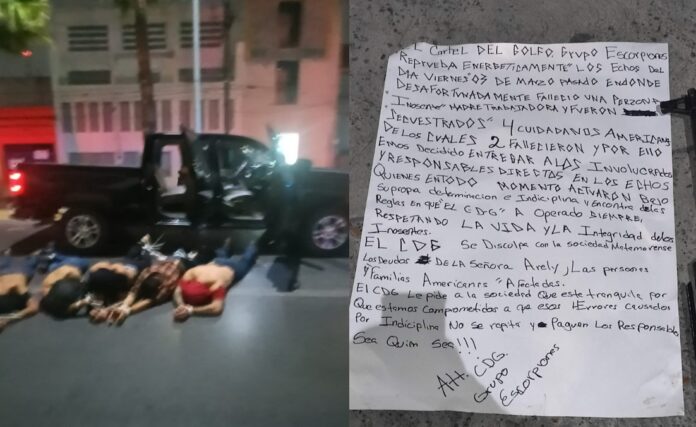 El Cartel DEL GOLFO. Grupo Escorpiones
REPRUEBA ENERGETICAMENTE" LOS Echos DEL
DIA VIERNES" 03 DE MARZO PASADO ENDONDE
DESAFORTUNADAMENTE FALLECIO UNA PERZONA
"Inosente" MADRE TRABAJADORA Y FUERON
SECUESTRADOS" 4 CUIDADANOS AMERICANOS
DE LOS CUALES 2 FALLECIERON Y POR ELLO
Emos Decidido ENTREGAR ALOS INVOLUCRADOS
Y RESPONSABLES DIRECTOS EN LOS ECHOS
QUIENES ENTODO MOMENTO ACTUARON BAJO
Su propa determinacion e Indiciplina y Encontra delas
Reglas en que "EL CDG" A Operado SIEMPRE,
RESPETANDO LA VIDA Y LA Integridad delos
Inosentes.
EL CDG Se Disculpa con la sociedad Matamorense
Los Deudos DE LA SEÑORA Arely, Las personas
y Familias Americanas "Afectadas.
El CDG Le pide a la sociedad Que este tranquila por
Que estamos Comprometidos a que esos Errores Causados
Por Indiciplina No se repita y Paguen Los Responsables
Sea Quim Sea!!!
AH. CDG.
Grupo
Escorpiones